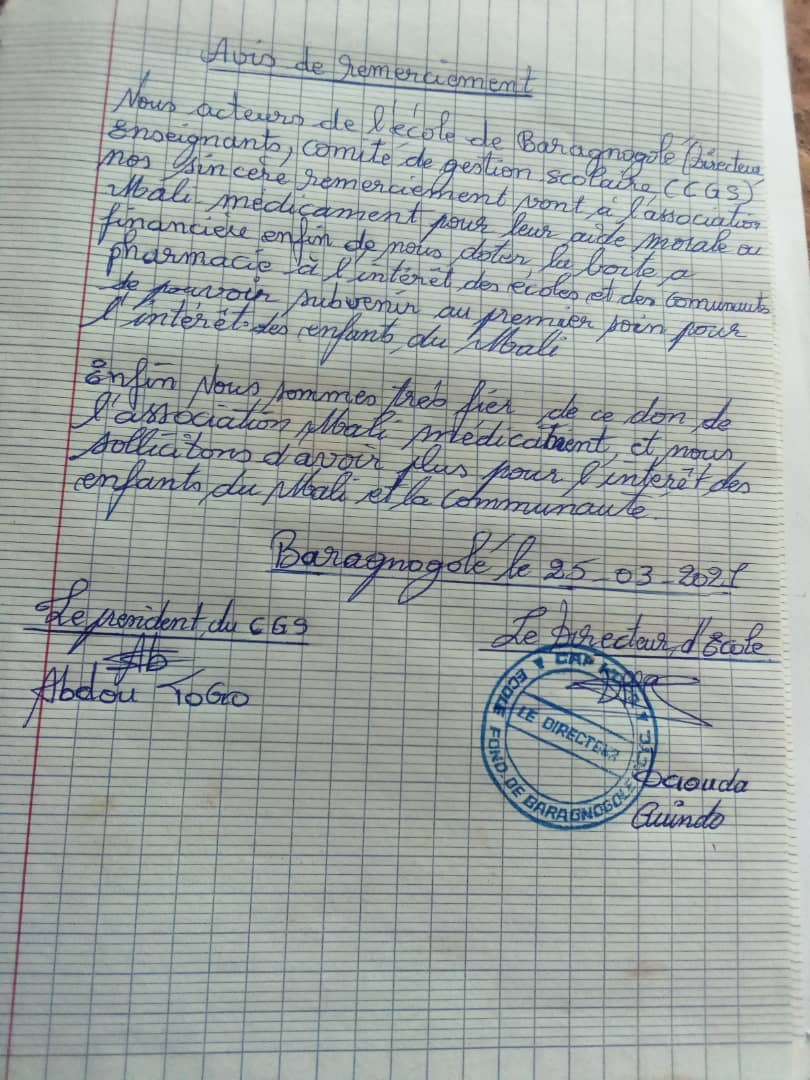 Avis de remerciement
Nous acteurs de l'école de Baragnogolé (Directeur
enseignants, comité de gestion scolaire (CGS)
nos sincère remerciement vont à l'association
Mali-médicament pour leur aide morale ou
financière enfin de nous doter la boite a
pharmacie à l'intérêt des écoles et des Comunauts
de pouvoir subvenir au premier soin pour
l'intérêt des enfants du Mali
Enfin Nous sommes treb fier de ce don de
l'association Mali médicament, et nous
sollicitons d'avoir plus pour l'intérêt des
enfants du Mali et la Communauté.
Baragnogolé le 25-03-2021
Le président du CGS
Le Directeur d'école
Abdou TOGO
CAP
ECOLE FOND. DE BARAGNOGOLE
LE DIRECTEUR
Daouda
Guindo